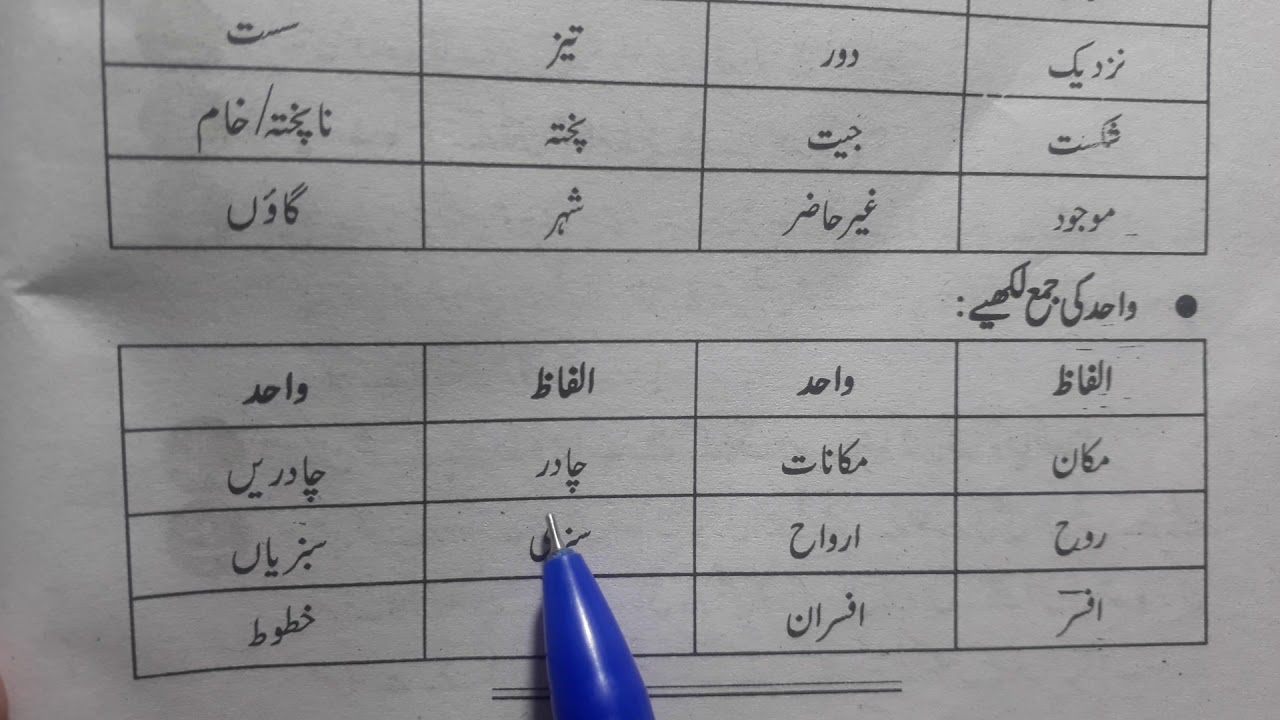 نزدیک دور تیز سست
شکست جیت پختہ ناپختہ/خام
موجود غیر حاضر شہر گاؤں
• واحد کی جمع لکھیے:
الفاظ واحد الفاظ واحد
مکان مکانات چادر چادریں
روح ارواح سبزی سبزیاں
افسر افسران خطوط